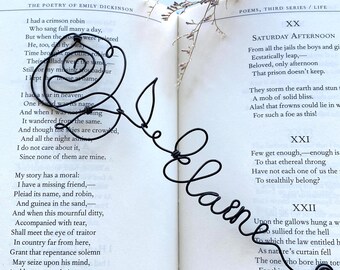 THE POETRY OF EMILY DICKINSON
I had a crimson robin
Who sang full many a day,
But when the woods were painted
He, too, did fly away.
Time brought me other robins,
Their ballads were the same,
Still for my missing troubadour
I kept the
I had a star in heaven
One
And when I was not heeding
It wandered from the same.
And though the skies are crowded,
And all the night ashine,
I do not care about it,
Since none of them are mine.
My story has a moral:
I have a missing friend,—
Pleiad its name, and robin,
And guinea in the sand,—
And when this mournful ditty,
Accompanied with tear,
Shall meet the eye of traitor
In country far from here,
Grant that repentance solemn
May seize upon his mind,
POEMS, THIRD SERIES / LIFE
XX
SATURDAY AFTERNOON
From all the jails the boys and gi
Ecstatically leap,—
Beloved, only afternoon
That prison doesn't keep.
They storm the earth and stun
A mob of solid bliss.
Alas! that frowns could lie in w
For such a foe as this!
XXI
Few get enough,—enough is
To that ethereal throng
Have not each one of us the
To stealthily belong?
XXII
Upon the gallows hung a w
Too sullied for the hell
To which the law
As nature's curtain fell
The one who bore him
Elaine